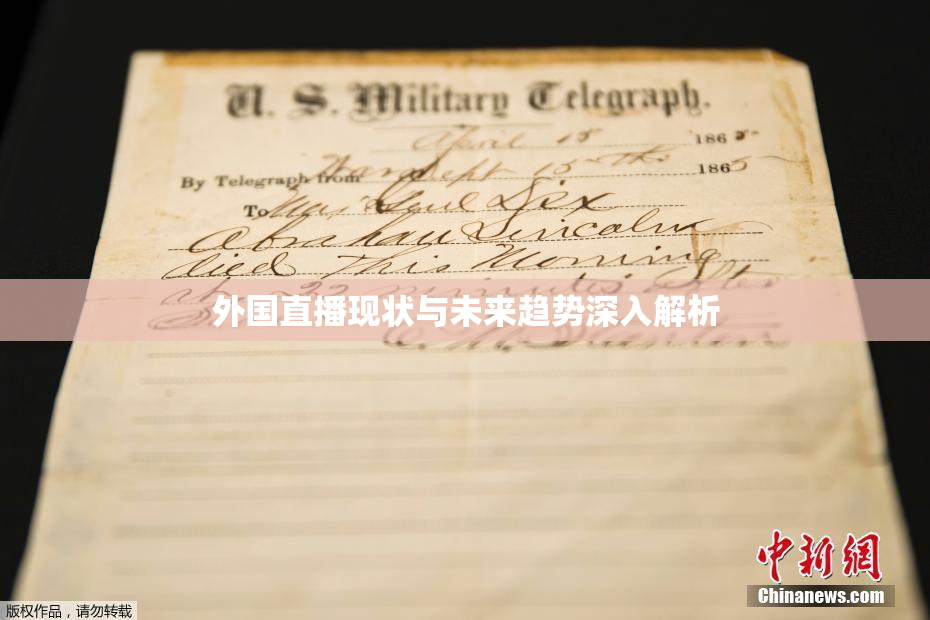 U. S. Military Telegraph.
April 15 1865
By Telegraph from War Dept 15th 1865
To Maj Genl Dix
Abraham Lincoln
died This Morning
at 22 minutes after
外国直播现状与未来趋势深入解析
中新網
Chinanews.com
版权作品，请勿转载